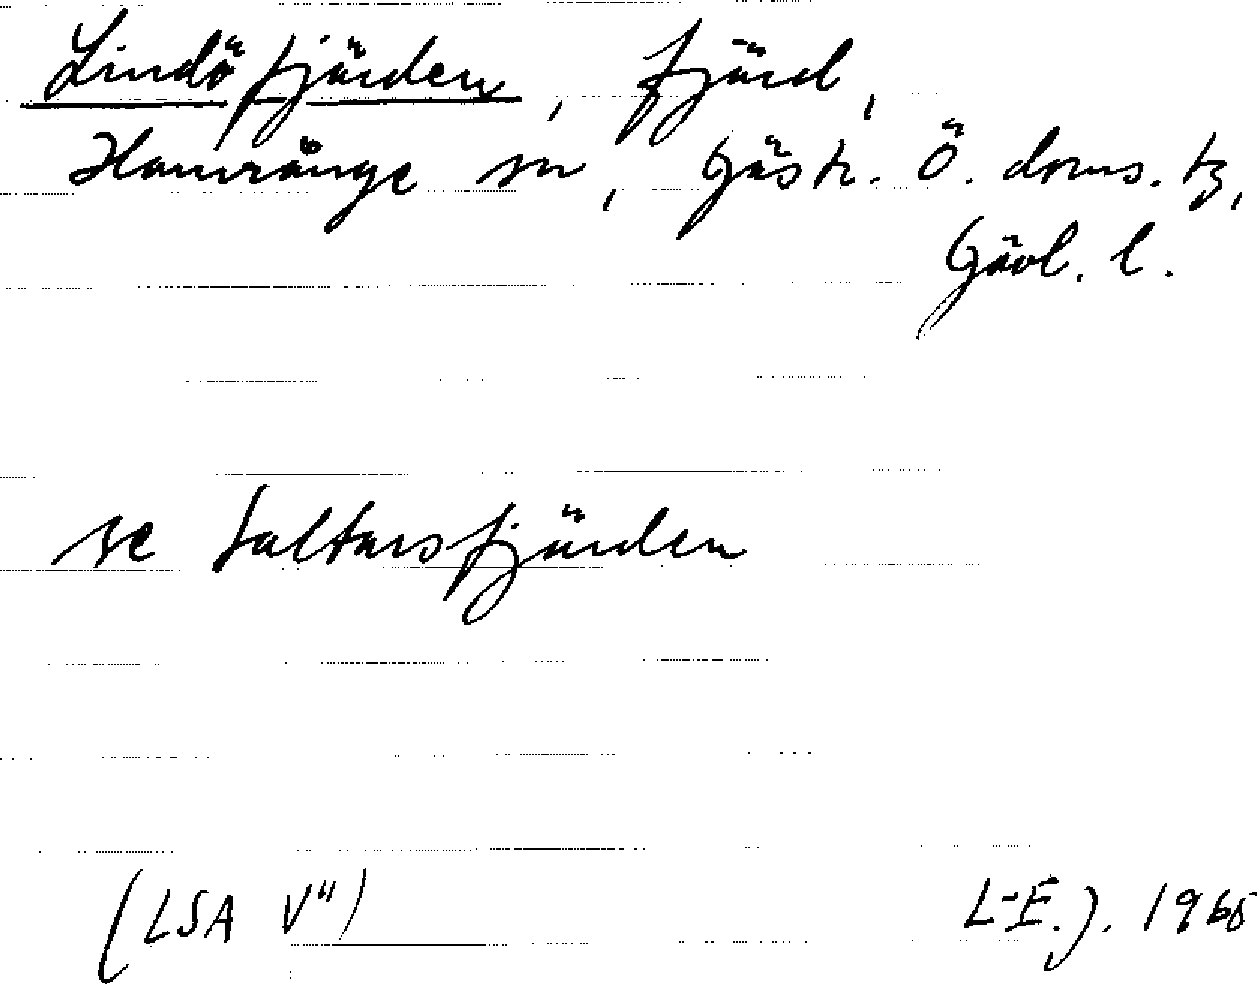 Lindöfjärden, fjärd,
Hamrånge sn, Gästr. Ö. doms. tg,
Gävl. l.
se Saltarsfjärden
(LSA V")
L-E.J. 1965